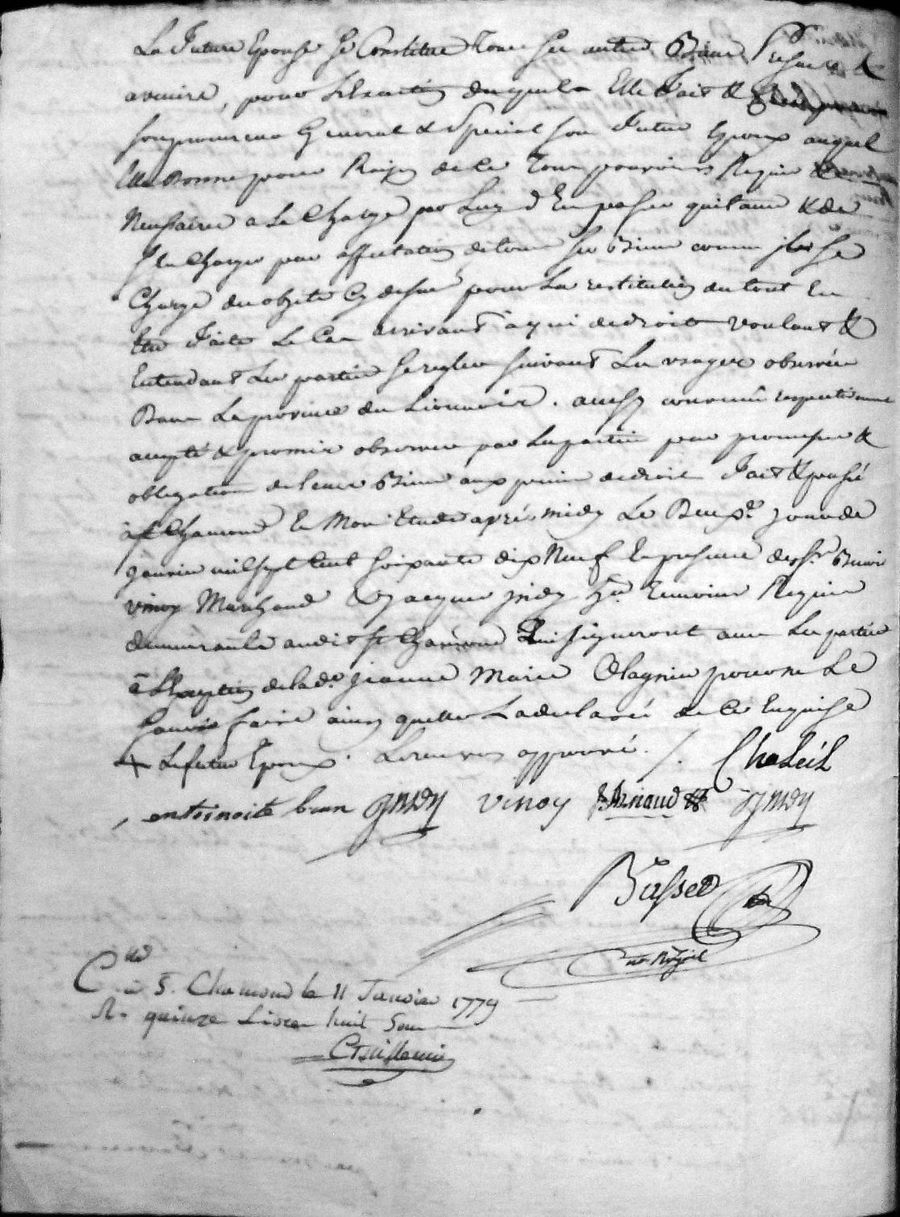 La future Epouse se Constitue tous ses autres Biens presents &
avenirs, pour Lexaction desquels Elle fait &
son procureur General & Special son futur Epoux auquel
Elle Donne pour Raison de Ce Tous pouvoirs Requis &
Necessaires a La Charge par Luy d'En passer quitance & de
s'En Charger par affectation de tous ses Biens comme il se
Charge des objets Cy dessus pour La restitution du tout En
Etre faite Le Cas arrivant a qui de droit voulant &
Entendant Les parties se regler suivant Les usages observés
Dans La province du Lionnois. ainsy convenu respectivement
accepté & promis observer par Les parties par promesse &
obligation de leurs Biens aux peines de droit fait & passé
a St Chamond En Mon Etude après midy Le jour de
janvier mil sept Cent soixante dix Neuf En presence de Sr Benoit
vinoy Marchand & jacques jmdy Temoins Requis
demeurants audit St Chamond Qui signeront avec Les parties
à L'Exception de lad. jeanne Marie pour ne Le
Scavoir faire ainsy quelle La declaré de Ce Enquise
+ Le futur Epoux. Le renvoy approuvé. /. Chaleil
, entoinoite bon jmdy vinoy Arnaud jmdy
Basset
no. Royal
C. a S. Chamond le 11 Janvier 1779
R. quinze Livres huit Sous